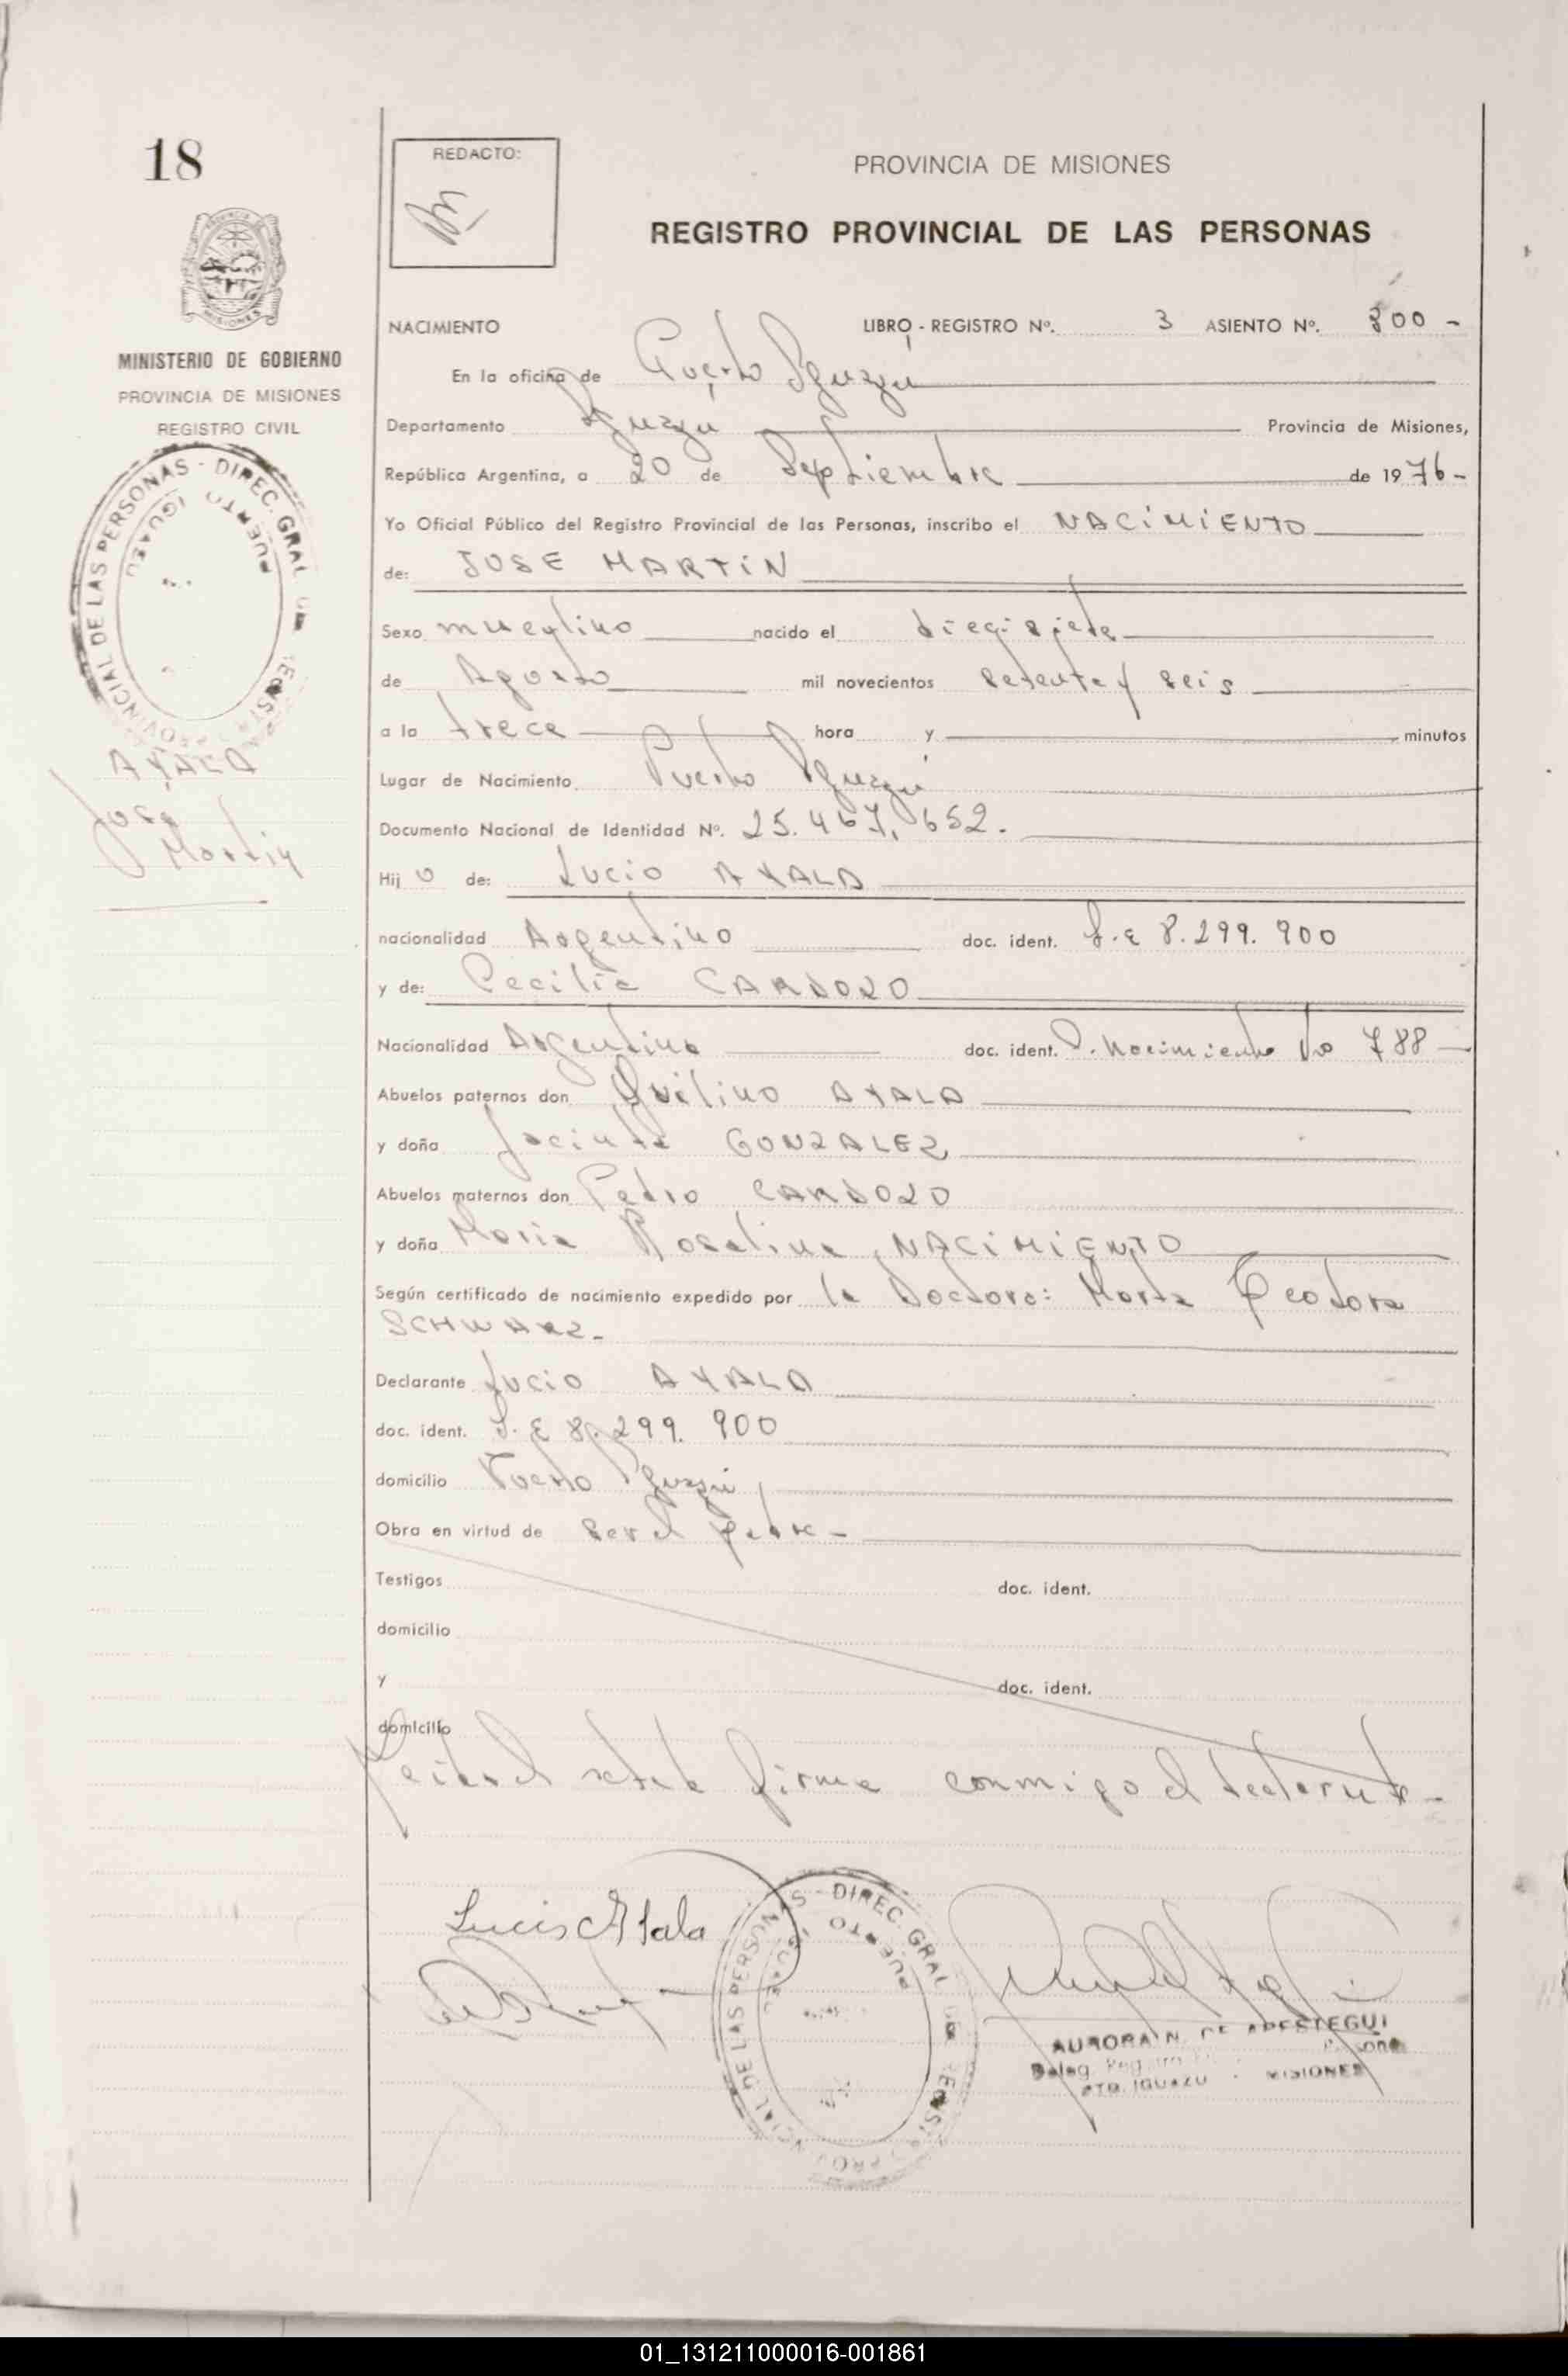 18
REDACTO:
PROVINCIA DE MISIONES
REGISTRO PROVINCIAL DE LAS PERSONAS
MISIONES
MINISTERIO DE GOBIERNO
PROVINCIA DE MISIONES
REGISTRO CIVIL
AYALA
José
Martin
NACIMIENTO LIBRO - REGISTRO Nº. 3 ASIENTO Nº. 800 -
En la oficina de Puerto Iguazú
Departamento Iguazú Provincia de Misiones,
República Argentina, a 20 de Septiembre de 1976-
Yo Oficial Público del Registro Provincial de las Personas, inscribo el NACIMIENTO
de: JOSE MARTIN
Sexo masculino nacido el diecisiete
de Agosto mil novecientos setenta y seis
a la trece hora y minutos
Lugar de Nacimiento Puerto Iguazú
Documento Nacional de Identidad Nº. 25.467.652.
Hij o de: Lucio AYALA
nacionalidad Argentino doc. ident. L.E 8.299.900
y de: Cecilia CARDOZO
Nacionalidad Argentina doc. ident. Nacimiento No 788
Abuelos paternos don Quilino AYALA
y doña Jacinta GONZALEZ
Abuelos maternos don Pedro CARDOZO
y doña Maria Rosalina NACIMIENTO
Según certificado de nacimiento expedido por la Doctora: Marta Teodora
SCHWARZ.
Declarante Lucio AYALA
doc. ident. L.E 8.299.900
domicilio Puerto Iguazú
Obra en virtud de ser el padre -
Testigos doc. ident.
domicilio
y doc. ident.
domicilio
Leida el acta la firma conmigo el declarante -
Lucio Ayala
DIREC. GRAL. DE LAS PERSONAS
PUERTO IGUAZU
AURORA N. DE APESTEGUI
Deleg.
PTO. IGUAZU - MISIONES
01_131211000016-001861